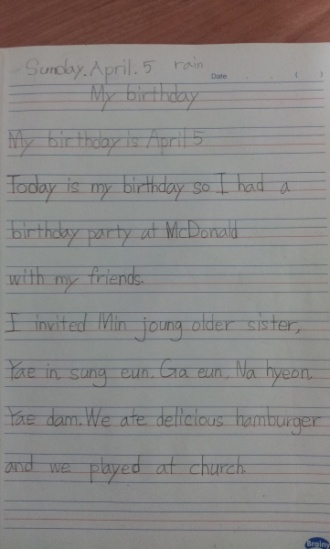 Sunday. April. 5 rain
Date . . . ( )
My birthday
My birthday is April 5
Today is my birthday so I had a
birthday party at McDonald
with my friends.
I invited Min joung older sister,
Yae in, sung eun. Ga eun, Na hyeon,
Yae dam. We ate delicious hamburger
and we played at church.